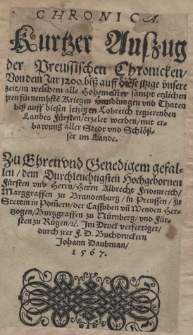 CHRONICA.
Kurtzer Außzug
der Preussischen Chronicken/
Von dem Jar 1200. biß auff diese jtzige vnsere
zeit/ in welchem alle Hohmeister sampt etlichen
jren fürnembste Kriegen handlungen vnd Thaten
biß auff diesen jetzigen Löblichen regierenden
Landes Fürsten/ erzelet werden/ mit er-
bawung aller Stedt vnd Schlös-
ser im Lande.
Zu Ehren vnd Genedigem gefal-
len/ dem Durchleuchtigsten Hochgebornen
Fürsten vnd Herrn/ Herrn Albrecht Friderich/
Marggraffen zu Brandenburg/ in Preussen/ zu
Stettin in Pomern/ der Cassuben vñ Wenden Her-
tzogen/ Burggraffen zu Nürnberg/ vnd Für-
sten zu Rügen/ ꝛc. Im Druck verfertiget/
durch jrer F. D. Buchdruckern
Johann Daubman/
1567.